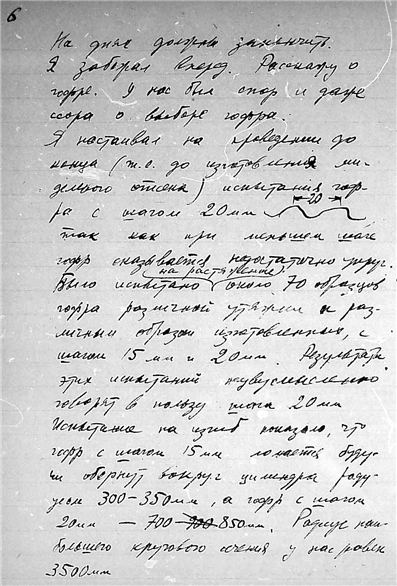 6
На днях должны закончить.
Я забежал вперед. Расскажу о
гофре. У нас был спор и даже
ссора о выборе гофра.
Я настаивал на проведении до
конца (т.е. до изготовления ми-
делевого отсека) испытания гоф-
ра с шагом 20мм 20
так как при меньшем шаге
гофр оказывается недостаточно упруг.
на растяжение
Было испытано около 70 образцов
гофра различной утяжки и раз-
личным образом изготовленных, с
шагом 15 мм и 20мм. Результаты
этих испытаний недвусмысленно
говорят в пользу шага 20мм
Испытание на изгиб показало, что
гофр с шагом 15мм ломается буду-
чи обернут вокруг цилиндра ради-
усом 300-350мм, а гофр с шагом
20мм — 700-850мм. Радиус наи-
большего кругового сечения у нас равен
3500мм